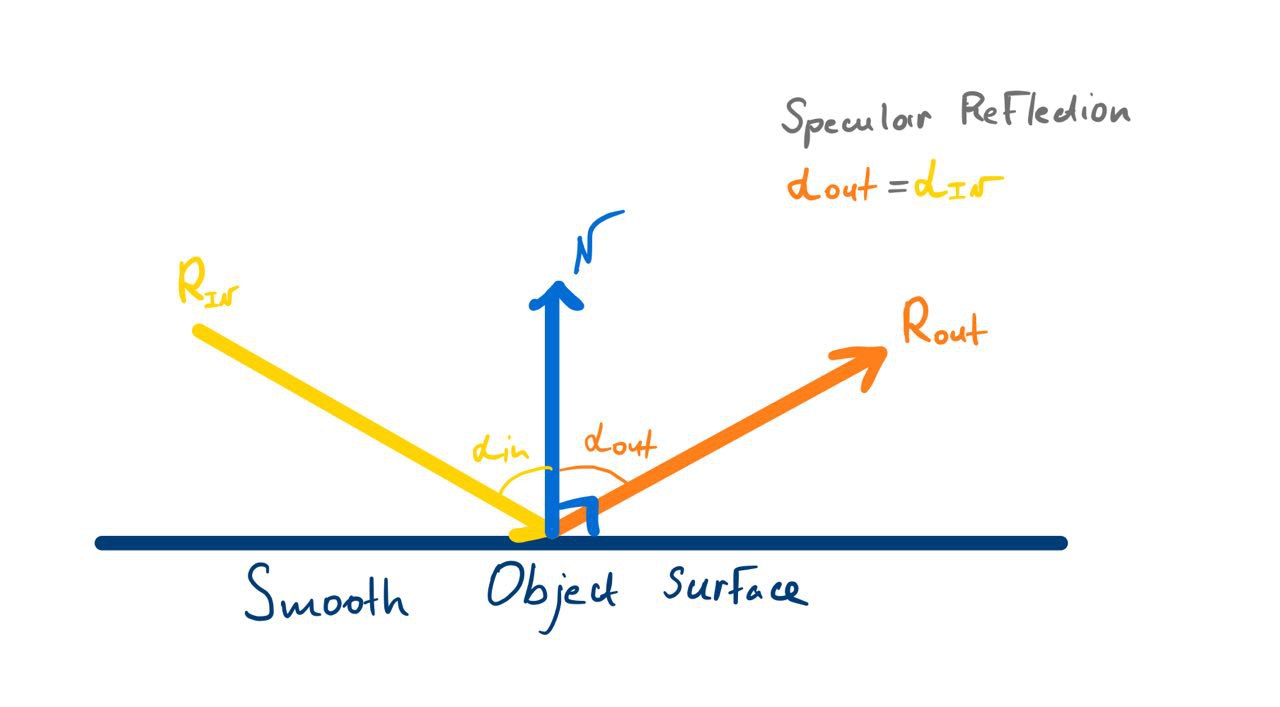 Specular Reflection
αout = αIN
N
RIN
Rout
αin αout
Smooth Object Surface